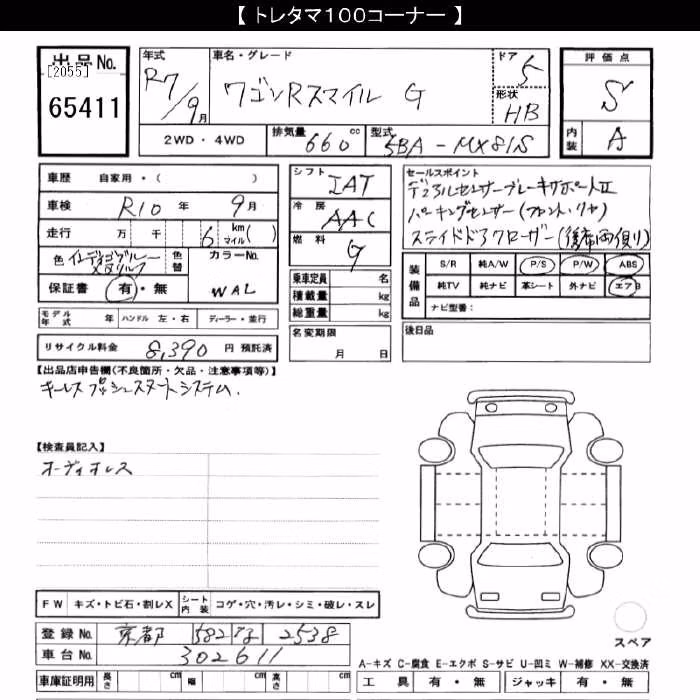 【 トレタマ100コーナー 】
出品No. [2055] 65411
年式 R7/9月
車名・グレード ワゴンRスマイル G
ドア 5
形状 HB
評価点 S
内装 A
2WD・4WD 排気量 660 cc 型式 5BA-MX81S
車歴 自家用・( )
車検 R10年 9月
走行 万 千 6 km マイル ( )
色 インディゴブルーメタリック 色替 カラーNo. WAL
保証書 有・無
モデル年式 年 ハンドル 左・右 ディーラー・並行
リサイクル料金 8,390 円 預託済
シフト IAT
冷房 AAC
燃料 G
乗車定員 名
積載量 kg
総重量 kg
名変期限 月 日
セールスポイント
デュアルセンサーブレーキサポートⅡ
パーキングセンサー(フロント、リヤ)
スライドドアクローザー(後席両側)
装備品 S/R 純A/W P/S P/W ABS
純TV 純ナビ 革シート 外ナビ エアB
ナビ型番:
後日品
【出品店申告欄(不良箇所・欠品・注意事項等)】
キーレスプッシュスタートシステム.
【検査員記入】
オーディオレス
FW キズ・トビ石・割レX シート内装 コゲ・穴・汚レ・シミ・破レ・スレ
登録No. 京都 582 な 2538
車台No. 302611
車庫証明用 長さ cm 幅 cm 高さ cm
スペア
A-キズ C-腐食 E-エクボ S-サビ U-凹ミ W-補修 XX-交換済
工具 有・無 ジャッキ 有・無